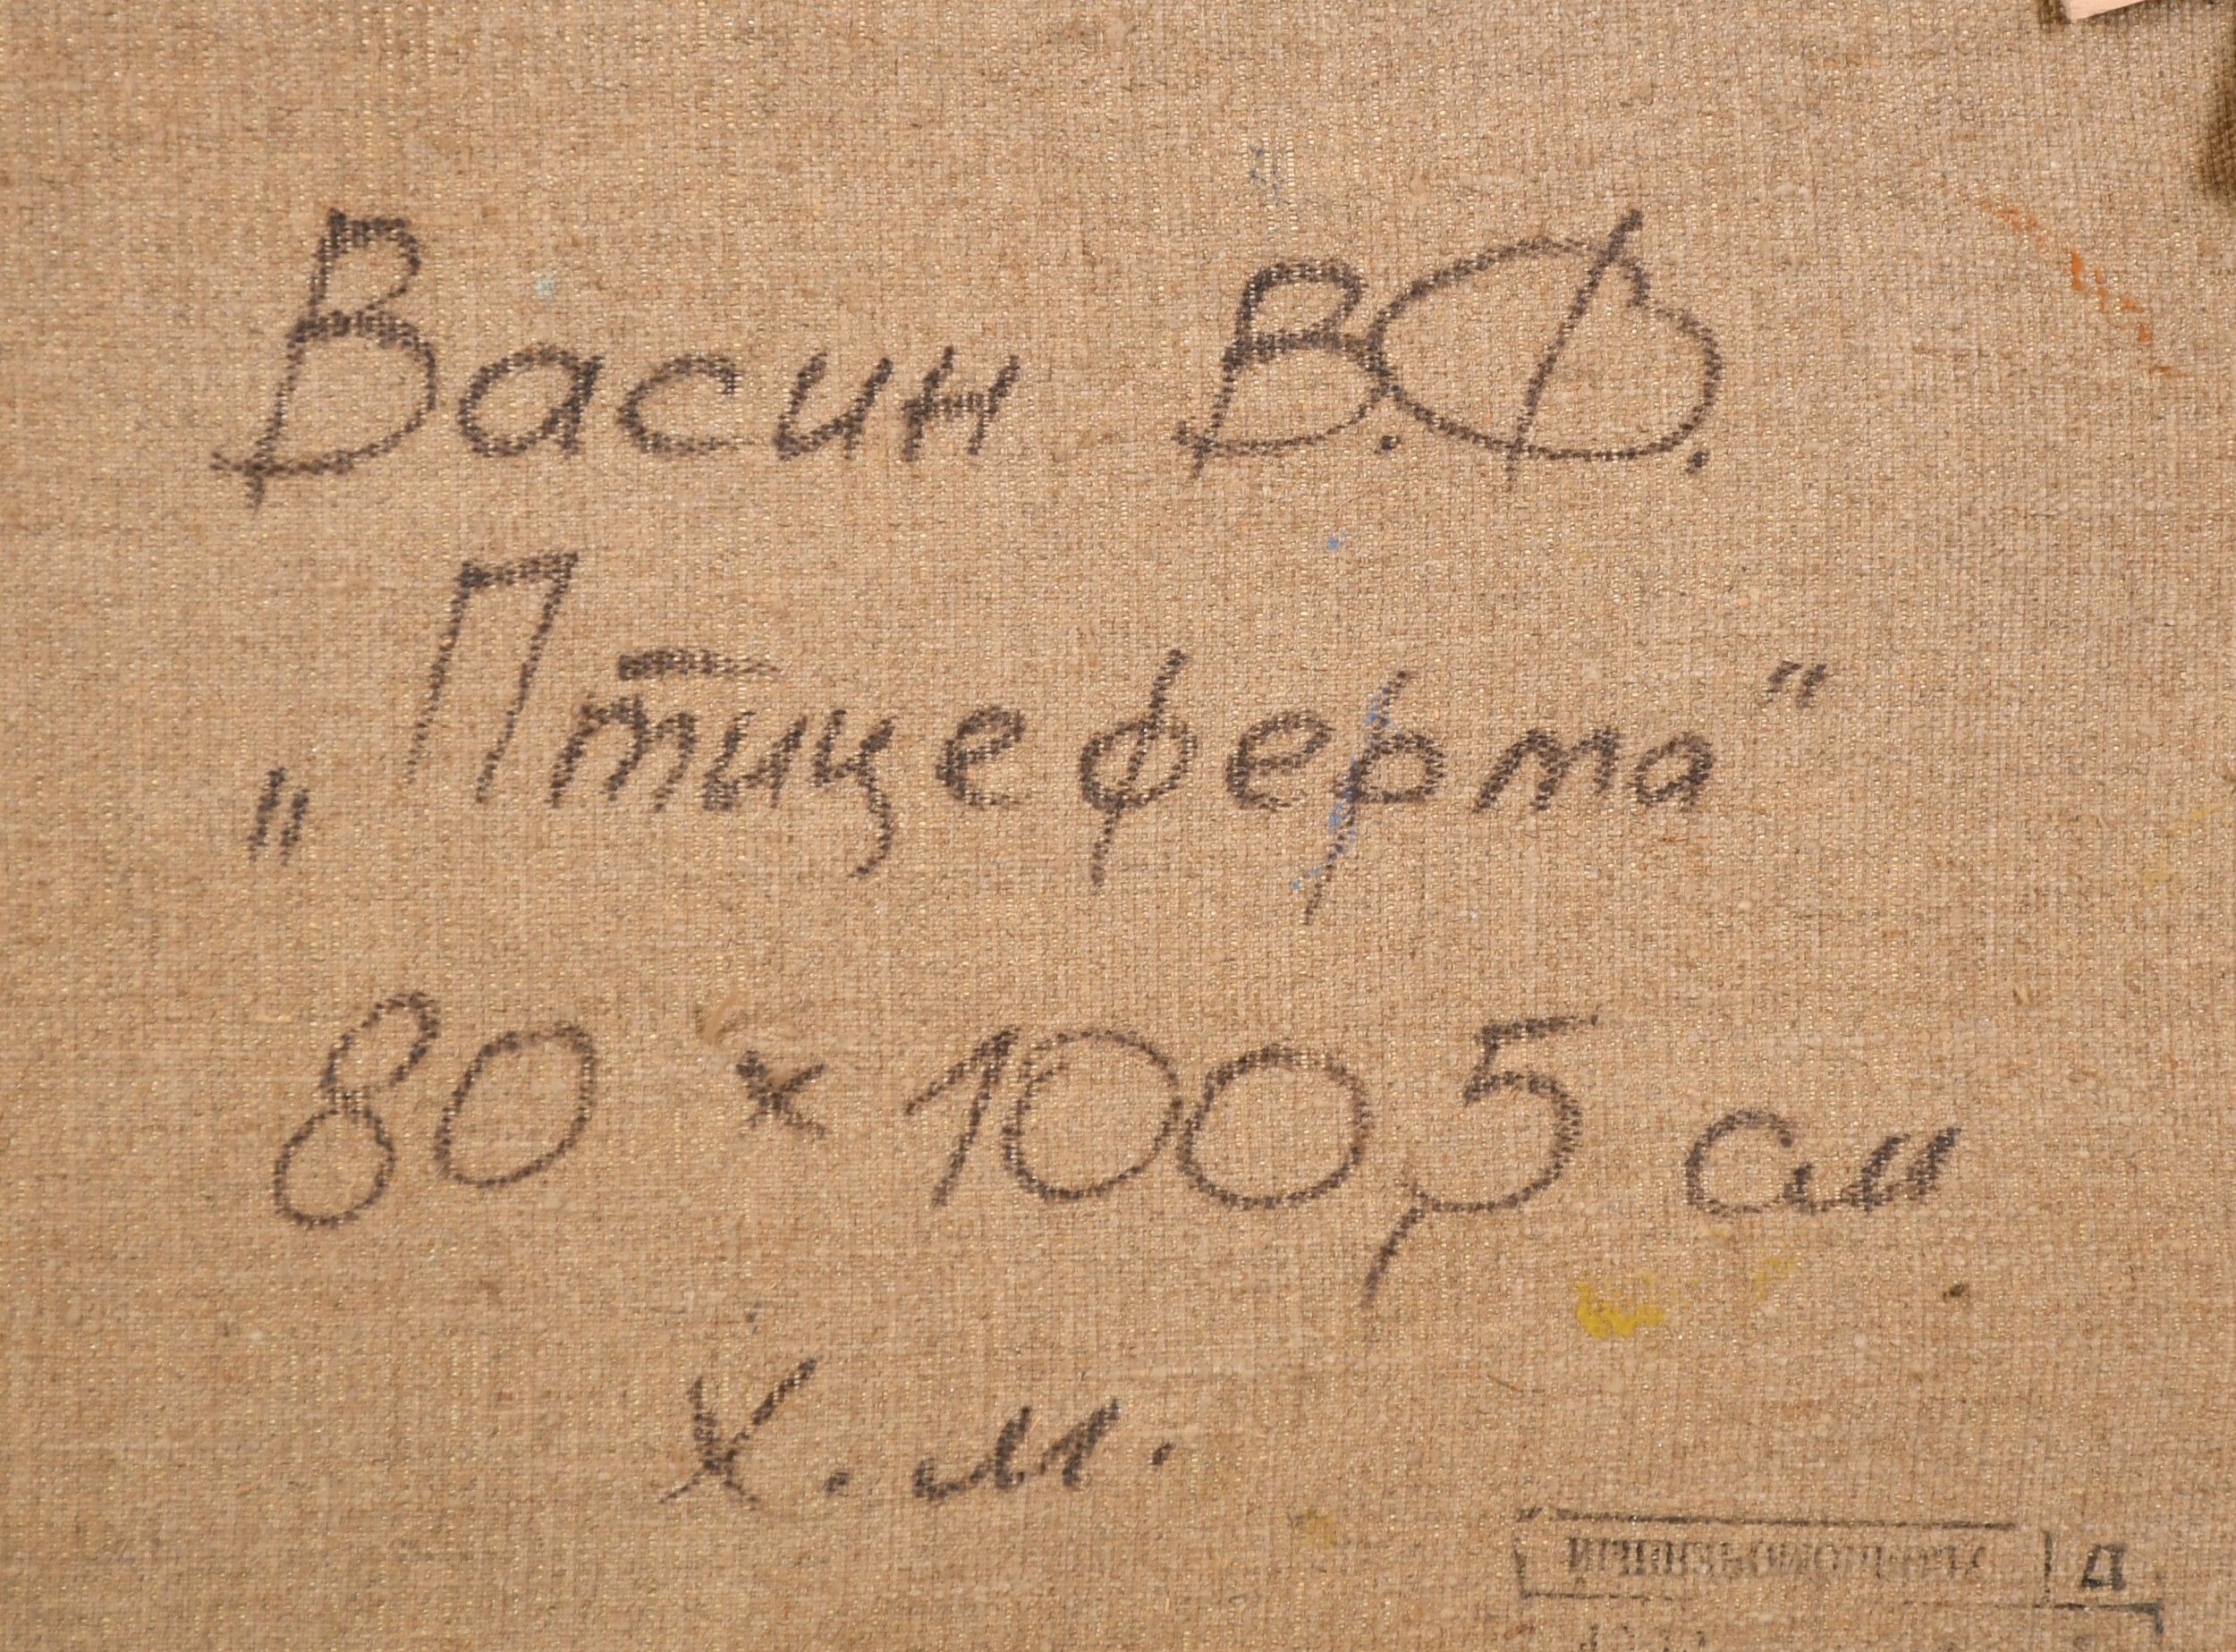 Васин В.Ф.
„Птицеферма"
80 × 100,5 см
х.м.